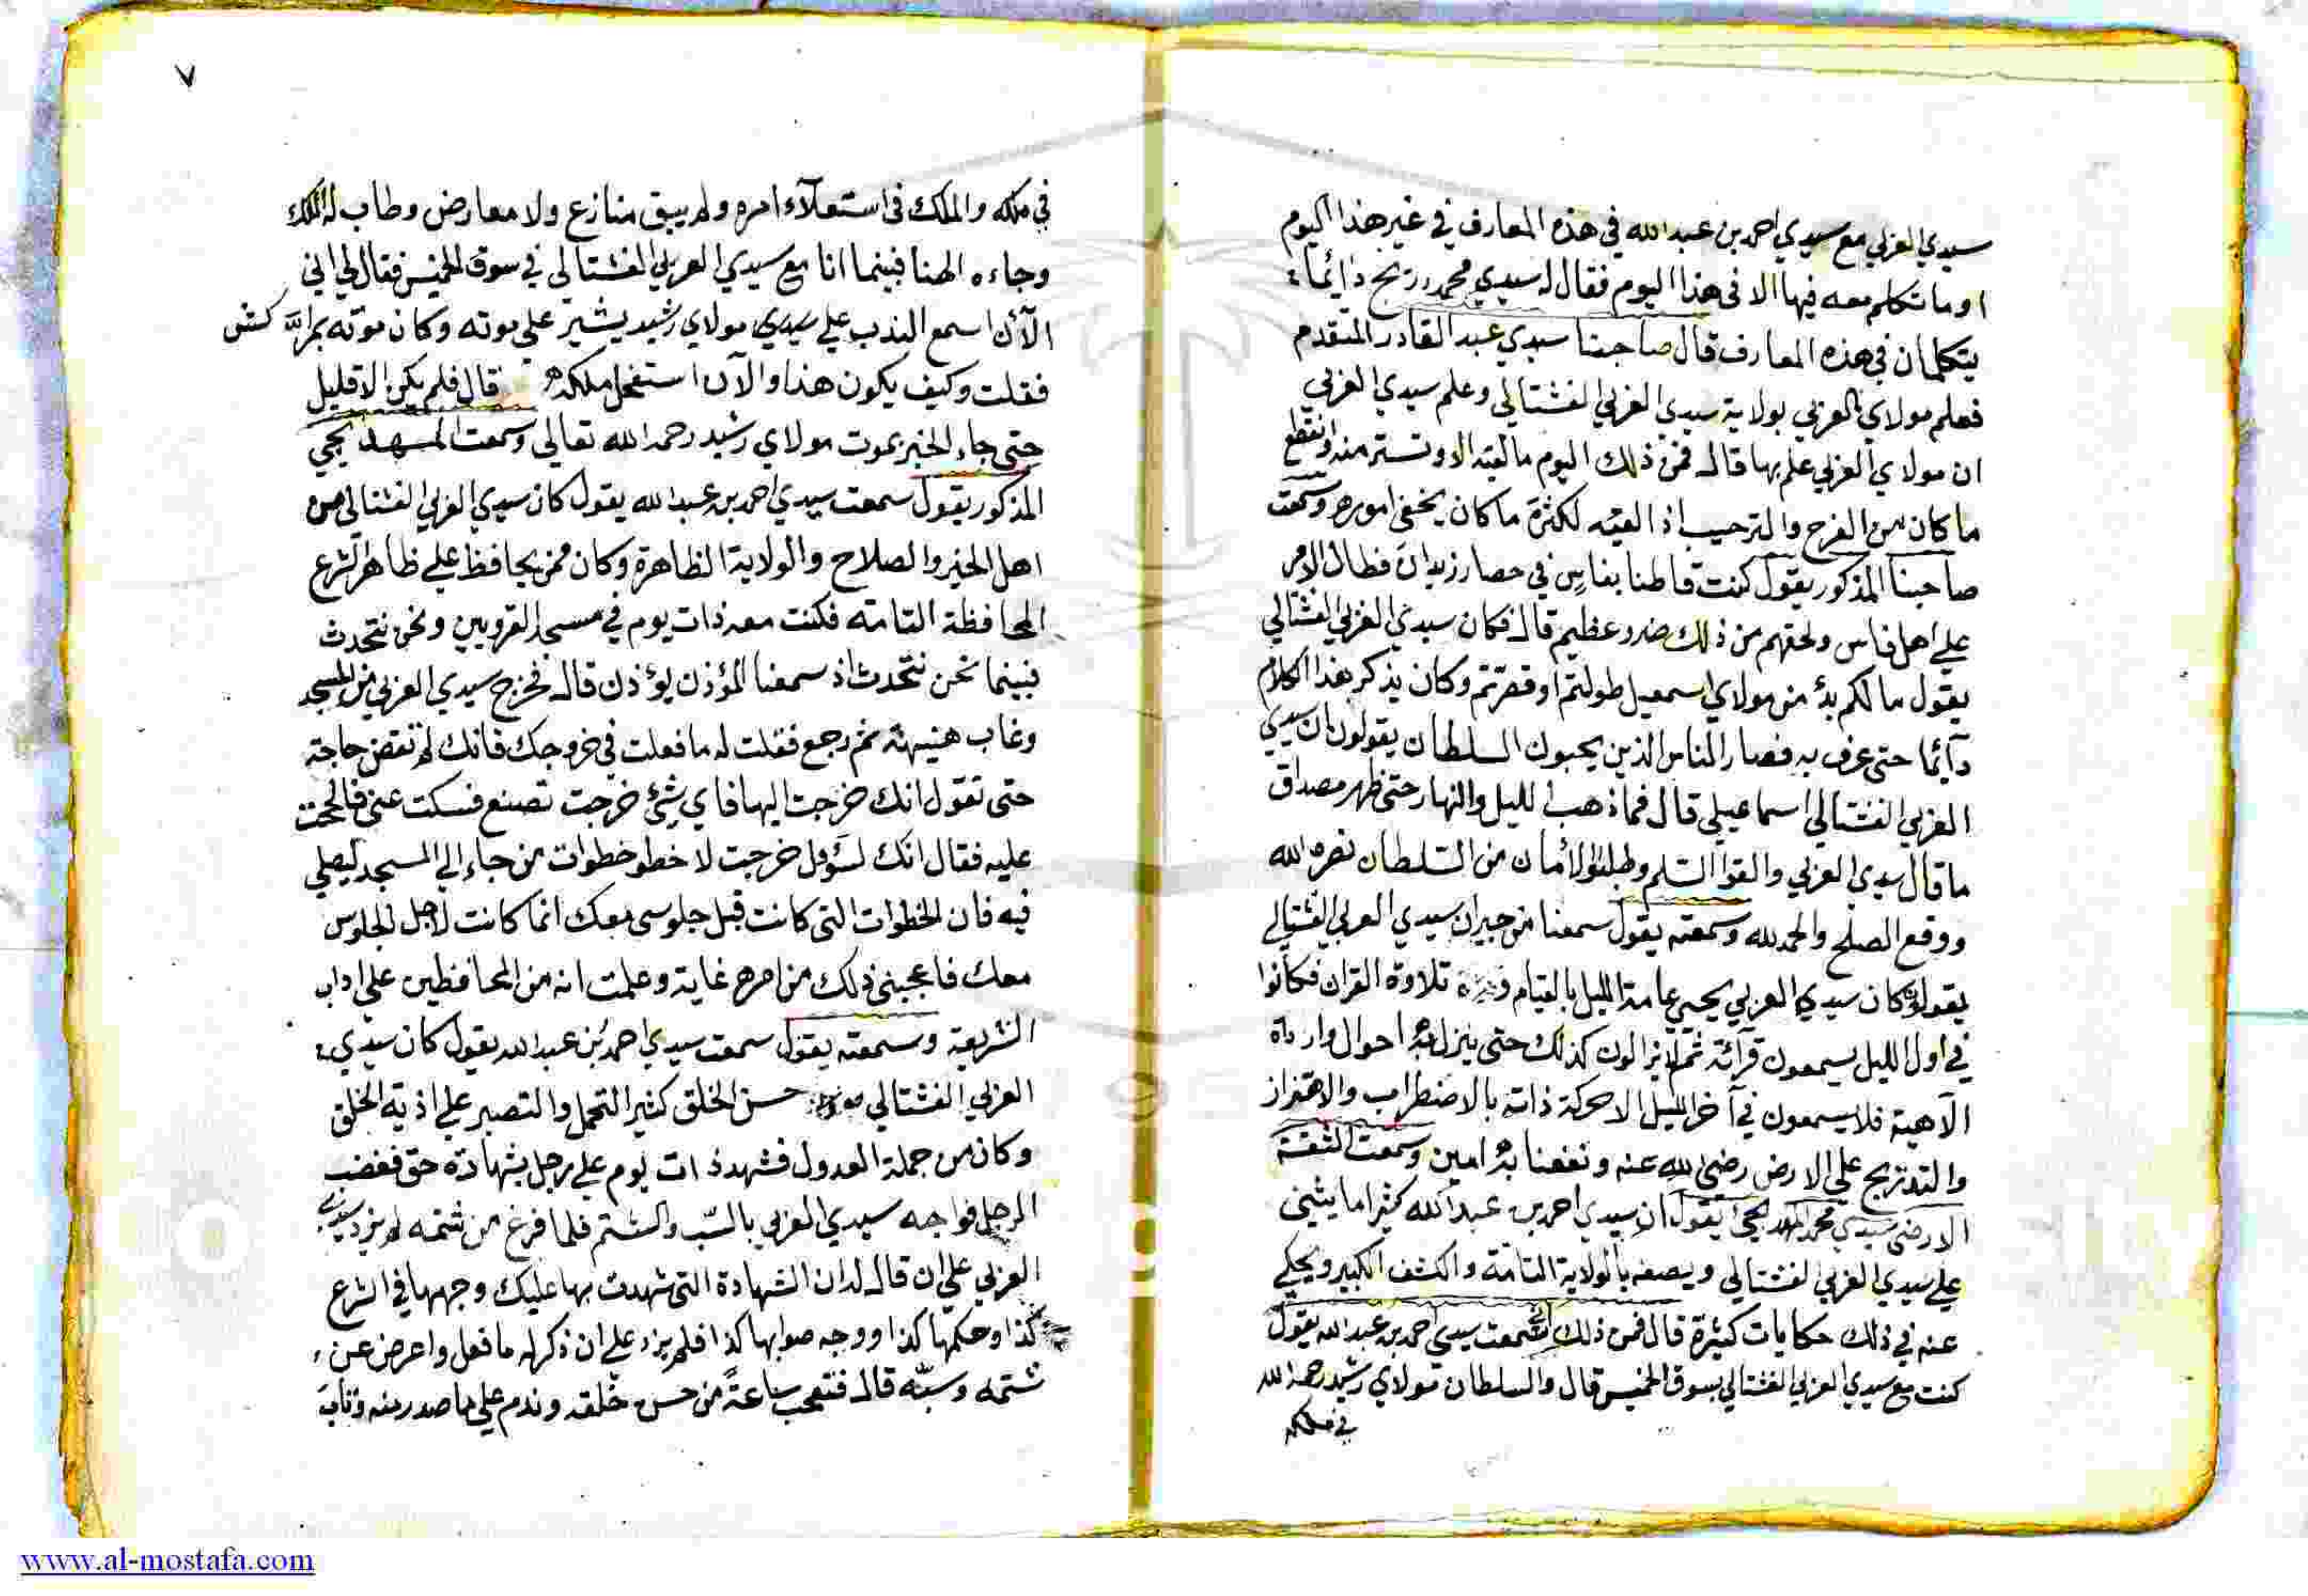 سيدي العربي مع سيدي احمد بن عبد الله في هذه المعارف في غير هذا اليوم
او ما تكلم معه فيها الا في هذا اليوم فقال له سيدي محمد دائما
يتكلمان في هذه المعارف قال صاحبنا سيدي عبد القادر المتقدم
فعلم مولاي العربي بولاية سيدي العربي الفشتالي وعلم سيدي العربي
ان مولاي العربي علم بها قال فمن ذلك اليوم ما لقيه الا وتستر منه وانقطع
ما كان من الفرح والترحيب اذ القيه لكثرة ما كان يخفي اموره وسمعت
صاحبنا المذكور يقول كنت قاطنا بفاس في حصار زيدان فطال الامر
علي اهل فاس ولحقهم من ذلك ضرر عظيم قال فكان سيدي العربي الفشتالي
يقول ما لكم بد من مولاي اسمعيل طولتم او قصرتم وكان يذكر هذا الكلام
دآئما حتى عرف به فصار الناس الذين يحبون السلطان يقولون ان سيدي
العربي الفشتالي اسماعيلي قال فما ذهب الليل والنهار حتى ظهر مصداق
ما قال سيدي العربي والقوا السلم وطلبوا الأمان من السلطان نصره الله
ووقع الصلح والحمد لله وسمعته يقول سمعنا من جيران سيدي العربي الفشتالي
يقولون كان سيدي العربي يحيي عامة الليل بالقيام تلاوة القران فكانوا
في اول الليل يسمعون قرآئته ثم لا يزالون كذلك حتى ينزل به احوال واردات
الاهية فلا يسمعون في آخر الليل الا حركة ذاته بالاضطراب والاهتزاز
والتدتريج على الارض رضي الله عنه ونفعنا به امين وسمعت الثقة
الارضى سيدي محمد يقول ان سيدي احمد بن عبد الله كثيرا ما يثني
علي سيدي العربي الفشتالي ويصفه بالولاية التامة والكشف الكبير ويحكي
عنه في ذلك حكايات كثيرة قال فمن ذلك اني سمعت سيدي احمد بن عبد الله يقول
كنت مع سيدي العربي الفشتالي بسوق الخميس قال والسلطان مولاي رشيد رحمه الله
في ملكه
٧
في ملكه والملك في استعلاء امره ولم يبق منازع ولا معارض وطاب له الملك
وجاءه الهنا فبينما انا مع سيدي العربي الفشتالي في سوق الخميس فقال لي اني
الآن اسمع الندب علي سيدي مولاي رشيد يشير علي موته وكان موته بمراكش
فقلت وكيف يكون هذا والآن استفحل ملكه قال فلم يكن الا قليل
حتى جاء الخبر بموت مولاي رشيد رحمه الله تعالي وسمعت
المذكور يقول سمعت سيدي احمد بن عبد الله يقول كان سيدي العربي الفشتالي من
اهل الخير والصلاح والولاية الظاهرة وكان ممن يحافظ علي ظاهر الشرع
المحافظة التامة فكنت معه ذات يوم في مسجد القرويين ونحن نتحدث
فبينما نحن نتحدث اذ سمعنا المؤذن يؤذن قال فخرج سيدي العربي من المسجد
وغاب هنيهة ثم رجع فقلت له ما فعلت في خروجك فانك لم تقض حاجة
حتى تقول انك خرجت اليها فاي شيء خرجت تصنع فسكت عني فالححت
عليه فقال انك لسؤول خرجت لاخطو خطوات من جاء الي المسجد ليصلي
فيه فان الخطوات التى كانت قبل جلوسي معك انما كانت لاجل الجلوس
معك فاعجبني ذلك من امره غاية وعلمت انه من المحافظين علي اداب
الشريعة وسمعته يقول سمعت سيدي احمد بن عبد الله يقول كان سيدي
العربي الفشتالي حسن الخلق كثير التحمل والتصبر علي اذية الخلق
وكان من جملة العدول فشهد ذات يوم علي رجل بشهادة حق فغضب
الرجل فواجه سيدي العربي بالسب والشتم فلما فرغ من شتمه لم يزد سيدي
العربي علي ان قال له ان الشهادة التى شهدت بها عليك وجهها في الشرع
كذا وحكمها كذا ووجه صوابها كذا فلم يزد علي ان ذكر له ما فعل واعرض عن
شتمه وسبه قال فتعجب ساعة من حسن خلقه وندم علي ما صدر منه وتاب
www.al-mostafa.com